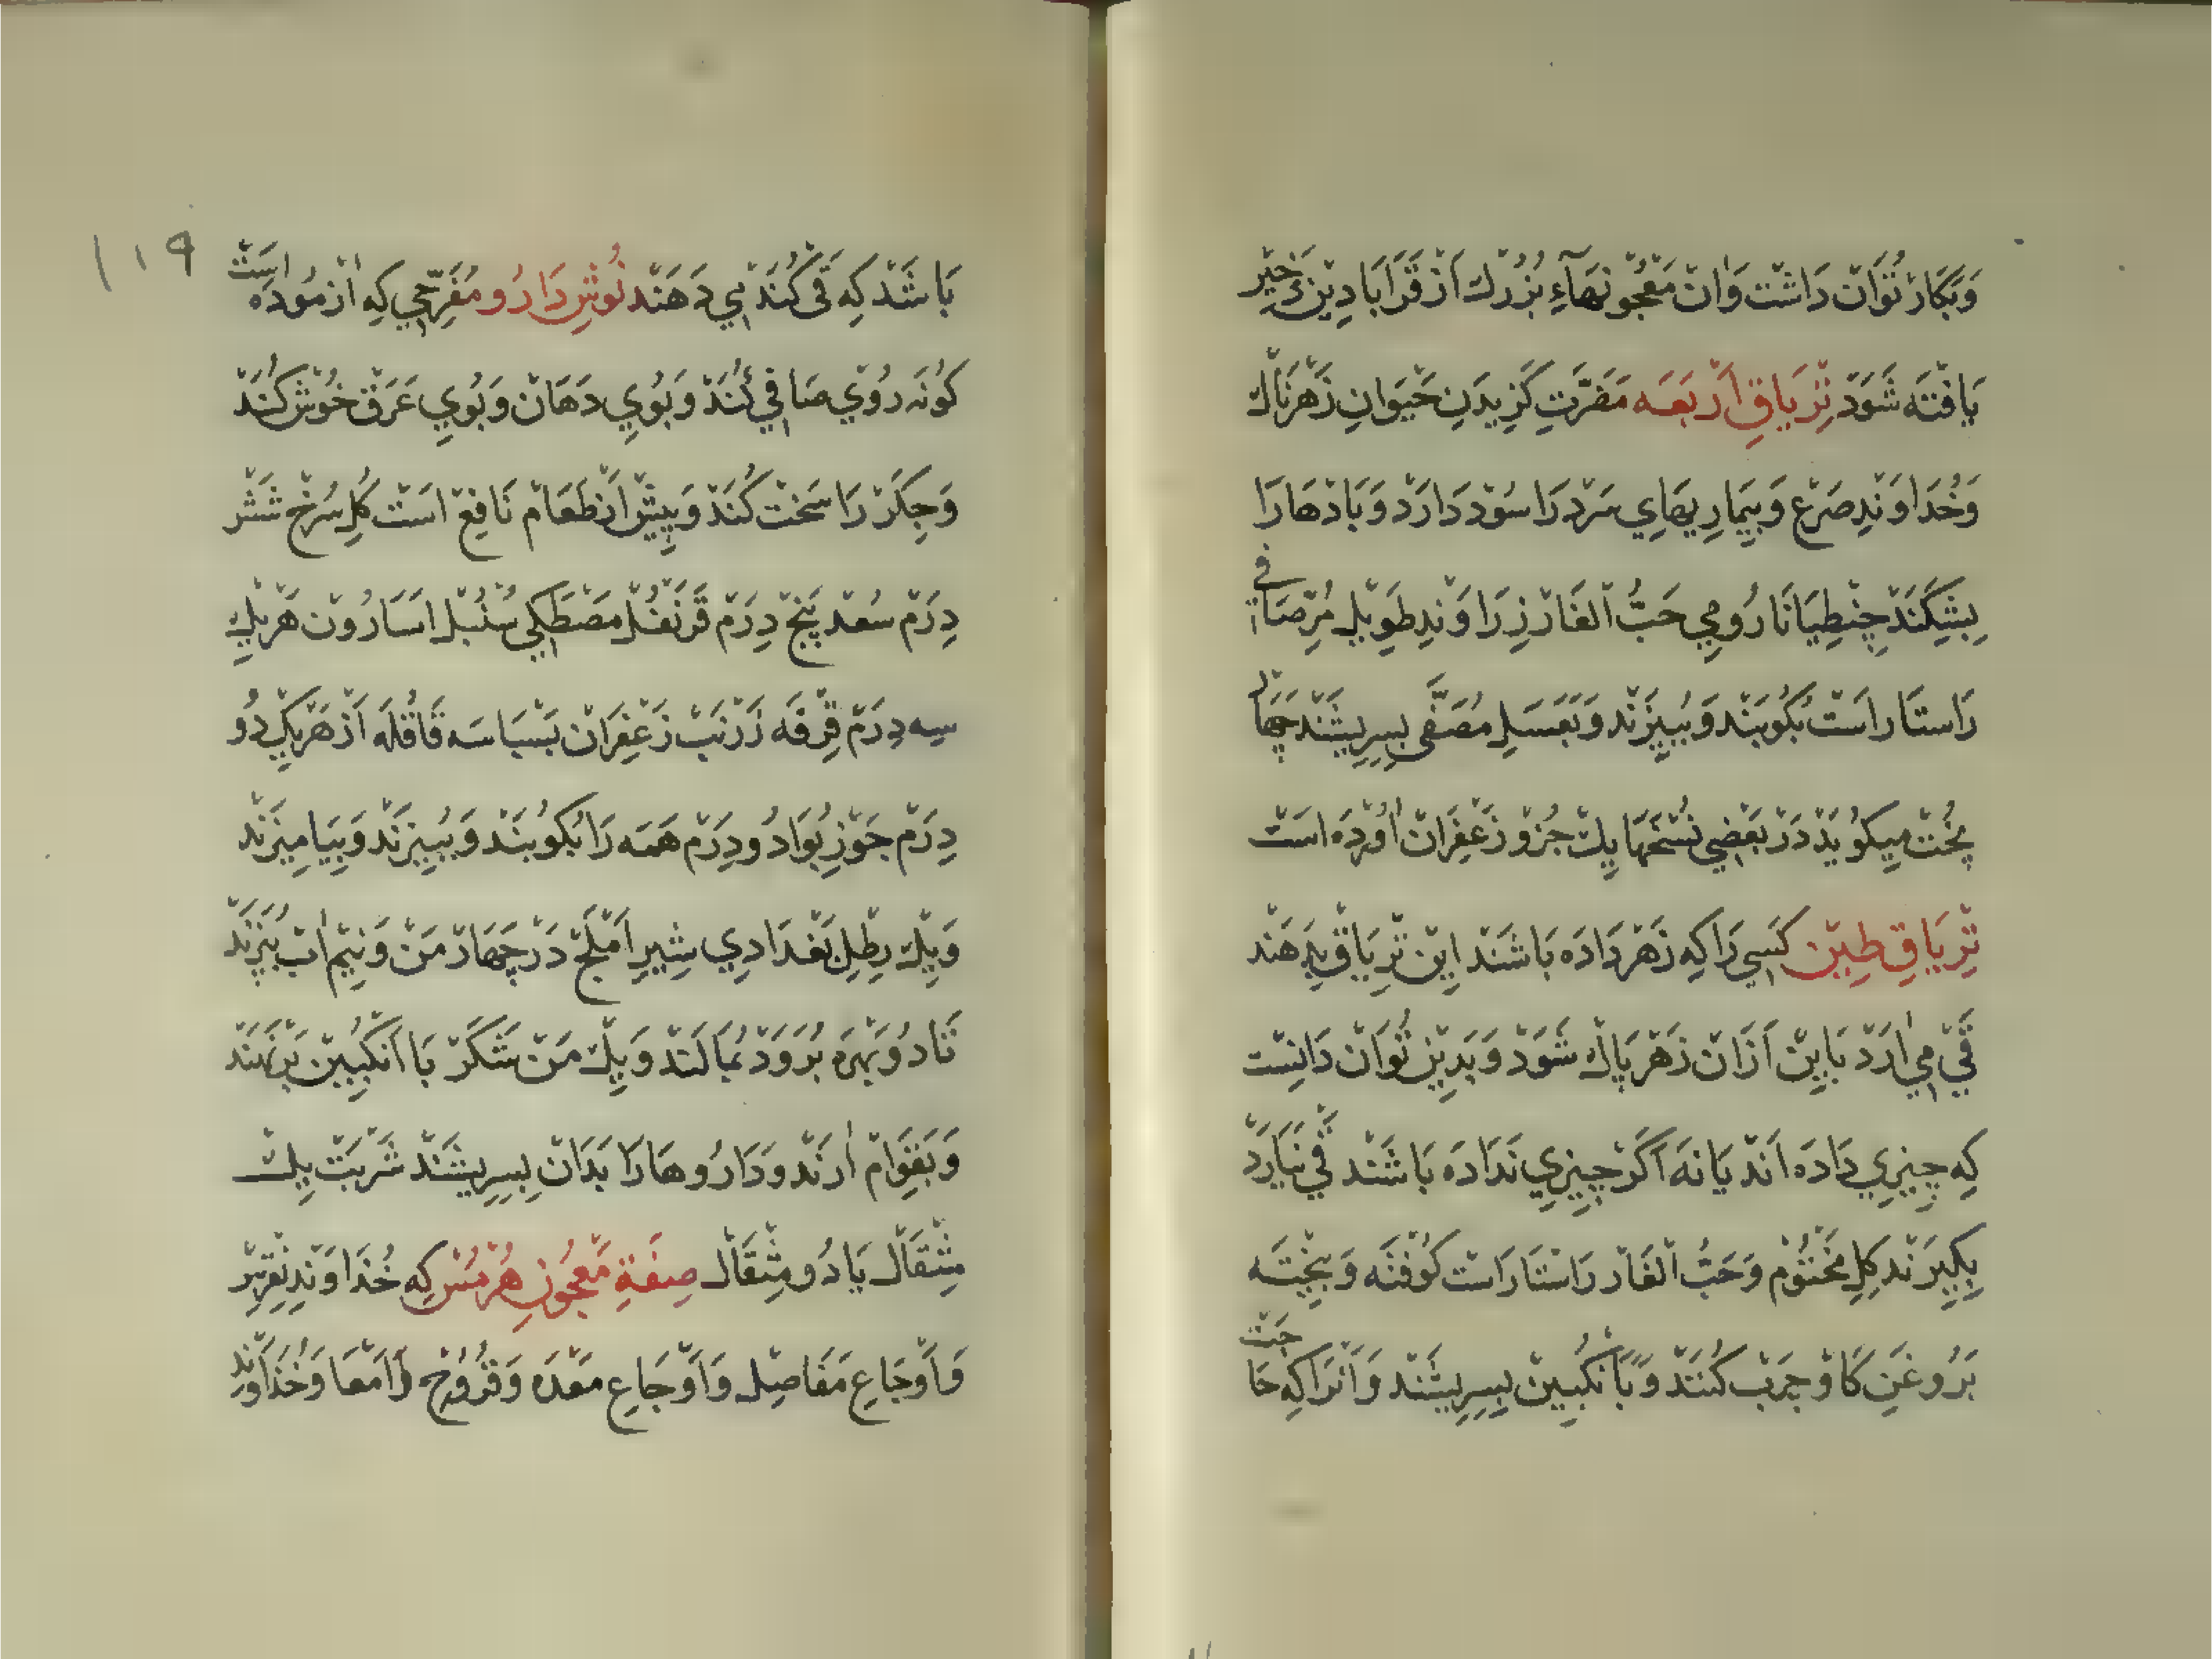 وَبَكَارْ تُوَانْ دَاشْت وَانْ مَعْجُونهَآءِ بُزُرْك اَزْ قَرَابَادِيْنِ ذَخيْر
يَافْتَه شَوَدْ تِرْيَاقِ اَرْبَعَه مَضَرَّتِ كَزِيدَنِ حَيَوانِ زَهْرنَاكْ
وَخُدَاوَنْدِ صَرْع وَبِيمَارِيهَايِ سَرْد رَا سُوْد دَارَدْ وَبَادْهَا رَا
بِشِكَنَدْ جِنْطِيَانَا رُومِي حَبُّ الْغَارْ زِرَاوَنْدِ طَوِيْل مُرِّ صَافي
رَاسْتَا رَاسَتْ بكُوبَنْد وَبِيزَنْد وَبَعَسَلِ مُصَفَّى بِسِرِيشَنْد چَهَارْ
پُخْتْ مِيكُويَدْ دَرْ بَعْضِي نُسْخَهَا يِكْ جُزو زَعْفَرَانْ اوُرْدَه اسَتْ
تِرْيَاقِ طِيْن كَسِي رَا كِه زَهْر دَادَه بَاشَنْد اِيْن تِرْيَاقْ بِدِهَنْد
قَيْ مِي ارَدْ بَايِنْ اَزَانْ زَهْر پَاكْ شَوَدْ وَبَدِيْن تُوَانْ دَانِسْت
كِه چِيزِي دَادَه اَنْدْ يَا نَه اَكَرْ چِيزِي نَدَادَه بَاشَنْد قَيْ نَيَارَدْ
بِكِيرَنْد كِلِ مَخْتُوْم وَحَبُّ الْغَارْ رَاسْتَا رَاسْت كُوفْتَه وَبِيخْتَه
بَرُوغَنِ كَاوْ چَرَبْ كُنَنْدْ وَبَانْكَبِينْ بِسِرِيشَنْد وَانْرَا كِه حَاجَتْ
بَاشَدْ كِه قَيْ كُنَدْ مِي دَهَنْد نُوْشِ دَارُو مُفَرِّحِي كِه ازْمُودَه اسَتْ
كَونَه رُوْي صَافِي كُنَدْ وَبُويِ دَهَانْ وَبُويِ عَرَقْ خُوشْ كُنَدْ
وَجِكَرْ رَا سَخْت كُنَدْ وَپِيْش ازْ طَعَامْ نَافِعْ اسَتْ كُلِ سُرْخْ شَشْ
دِرَمْ سُعْد پَنْجْ دِرَمْ قَرَنْفُلْ مَصْطَكِي سُنْبُلْ اسَارُونْ هَرْيِكْ
سِه دِرَمْ قِرْفَه زَرْنَبْ زَعْفِرَانْ بَسْبَاسَه قَاقُلَه اَزْ هَرْيِكْ دُو
دِرَمْ جَوْزِ بُوَا دُو دِرَمْ هَمَه رَا بكُوبَنْد وَبِيزَنْد وَبِيَامِيزَنْد
وَيِكْ رِطْلِ بَغْدَادِي شِيرِ اَمْلَجْ دَرْ چَهَارْ مَنْ وَنِيْم ابْ بِپَزَنْد
تَا دُو بَهْرَه بُرَوَدْ بمَالَنْد وَيِكْ مَنْ شَكَرْ بَا انْكَبِيْن بَرْنَهَنْد
وَبَقِوَامْ ارَنْد وَدَارُوهَا رَا بَدَانْ بِسِرِيشَنْد شَرْبَتْ يِكْ
مِثْقَالْ يَا دُو مِثْقَالْ صِفَةِ مَعْجُونِ هُرْمُسْ كِه خُدَاوَنْدِ نِقْرِيْس
وَاَوْجَاعِ مَفَاصِلْ وَاَوْجَاعِ مَعْدَه وَقُرُوْحِ اَمْعَا وَخُدَاوَنْدِ
١١٩